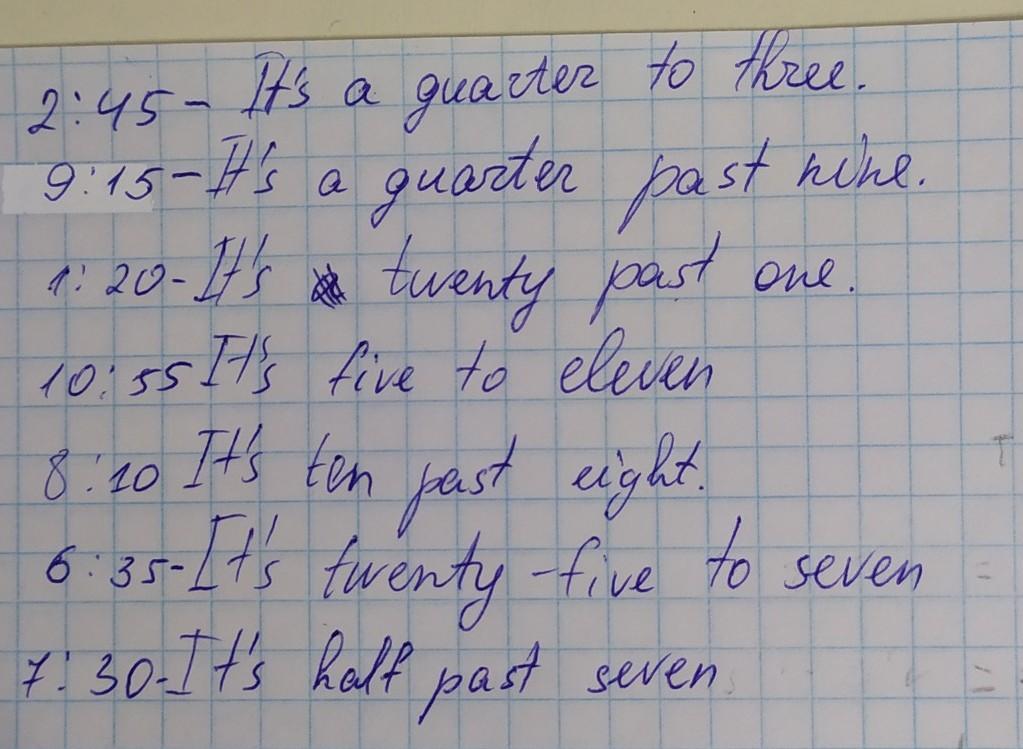 2:45 - It's a quarter to three.
9:15 - It's a quarter past nine.
1:20 - It's twenty past one.
10:55 It's five to eleven
8:10 It's ten past eight.
6:35 - It's twenty-five to seven
7:30 - It's half past seven